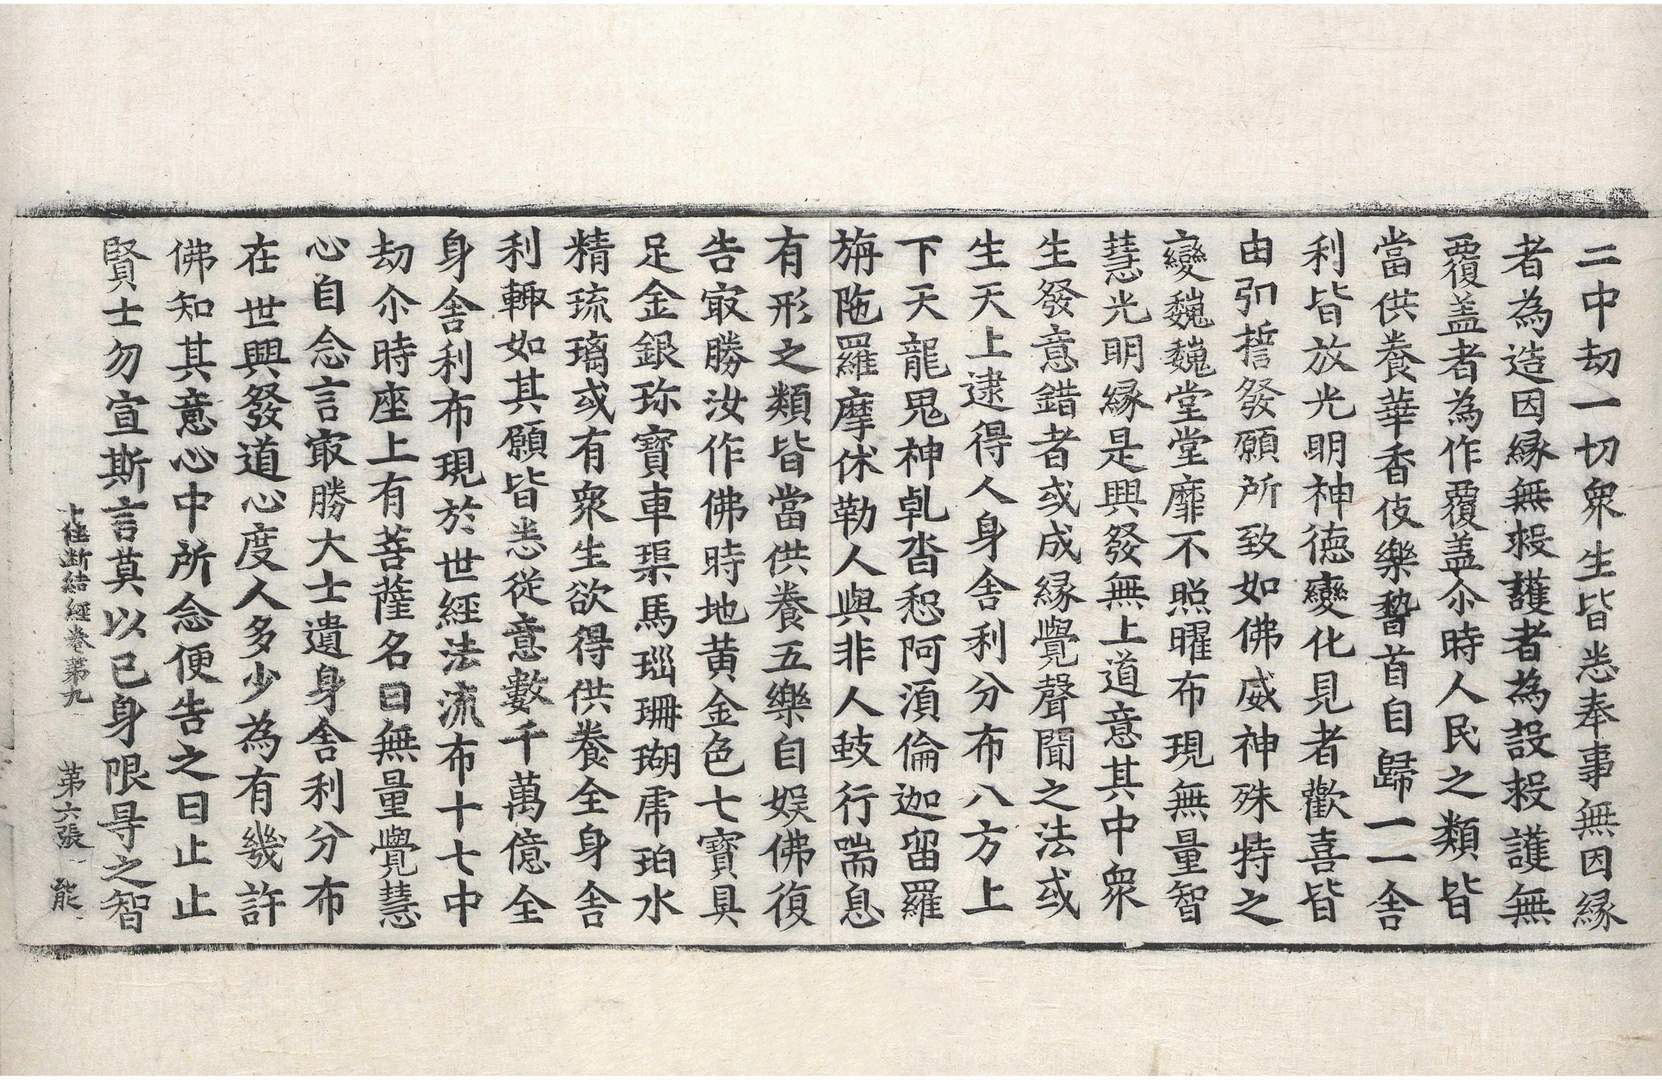 二中劫一切衆生皆悉奉事無因緣
者為造因緣無救護者為設救護無
覆盖者為作覆盖尒時人民之類皆
當供養華香伎樂稽首自歸一一舍
利皆放光明神德變化見者歡喜皆
由引誓發願所致如佛威神殊特之
變巍巍堂堂靡不照曜布現無量智
慧光明緣是興發無上道意其中衆
生發意錯者或成緣覺聲聞之法或
生天上逮得人身舍利分布八方上
下天龍鬼神乹沓惒阿湏倫迦留羅
旃陁羅摩休勒人與非人蚑行喘息
有形之類皆當供養五樂自娛佛復
告㝡勝汝作佛時地黄金色七寶具
足金銀珎寶車𤦲馬瑙珊瑚虎珀水
精琉璃或有衆生欲得供養全身舍
利輙如其願皆悉從意數千萬億全
身舍利布現於世經法流布十七中
劫尒時座上有菩薩名曰無量覺慧
心自念言㝡勝大士遺身舍利分布
在世興發道心度人多少為有幾許
佛知其意心中所念便告之曰止止
賢士勿宣斯言莫以己身限㝵之智
十住斷結經卷第九　第六張　能